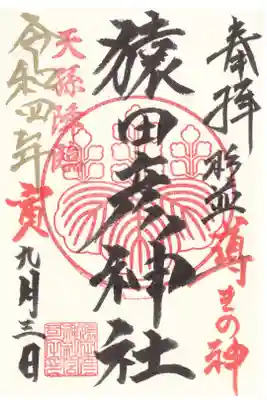 奉拝
導きの神
猿田彦神社
天孫降臨
令和四年
寅
九月三日